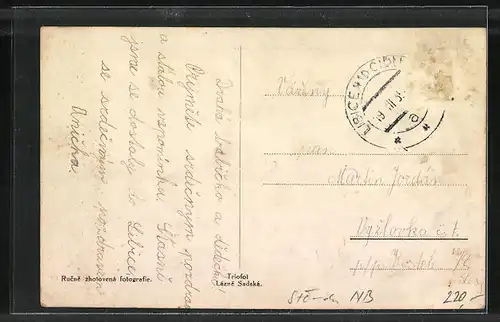 Drahá babičko a dědečku!
Přijměte srdečný pozdrav
a stálou vzpomínku. Šťastně
jsme se dostaly do Libice.
se srdečným pozdravem
Anička.
Ručně zhotovená fotografie.
Triofot
Lázně Sadská.
LIBICE NAD CIDL
Vážený
pan
Martin Jordán
č.
p/p.
NB
220,-